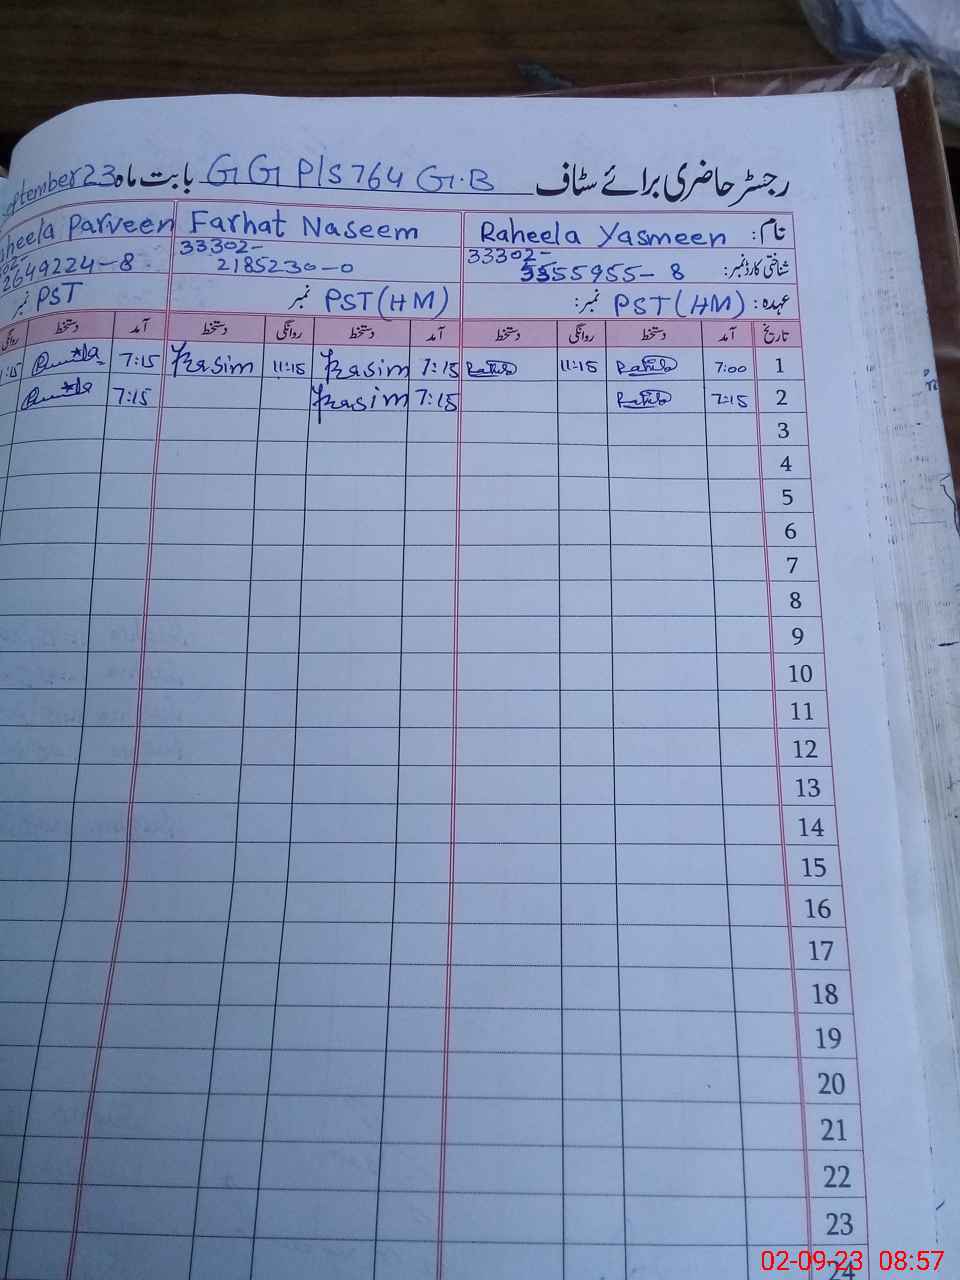 رجسٹر حاضری برائے سٹاف GG P/S 764 G.B بابت ماہ September 23
نام: Raheela Yasmeen Farhat Naseem Raheela Parveen
شناختی کارڈ نمبر: 33302- 33302-
5555955-8 2185230-0 2649224-8
عہدہ: PST (HM) نمبر: PST (HM) نمبر PST نمبر
تاریخ آمد دستخط روانگی دستخط آمد دستخط روانگی دستخط آمد دستخط روانگی
1 7:00 11:15 7:15 11:15 7:15
2 7:15 7:15 7:15
3
4
5
6
7
8
9
10
11
12
13
14
15
16
17
18
19
20
21
22
23
24
02-09-23 08:57